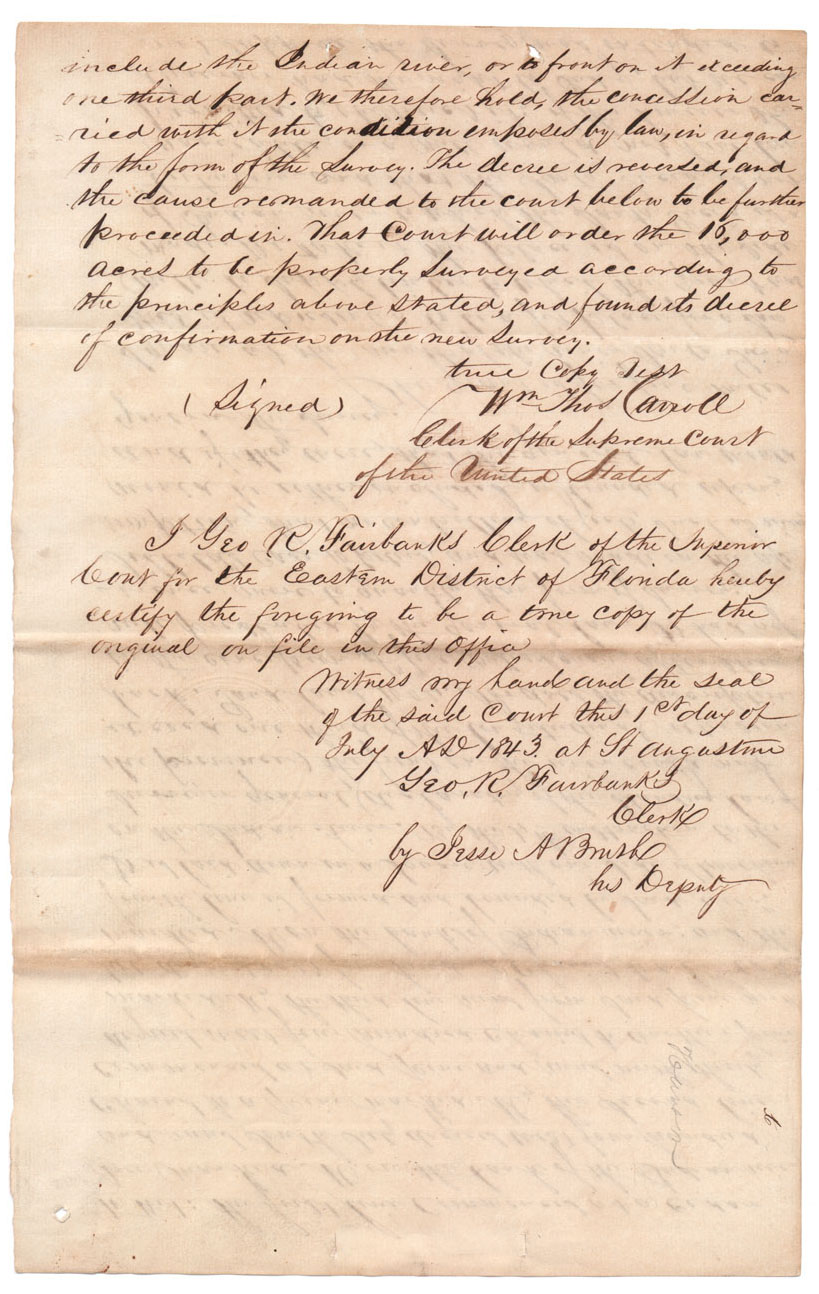 include the Indian river, or to front on it exceeding
one third part. We therefore hold, the concession car-
=ried with it the condition emposes by law, in regard
to the form of the Survey. The decree is reversed, and
the cause remanded to the court below to be further
proceeded in. That Court will order the 16,000
acres to be properly Surveyed according to
the principles above stated, and found its decree
of confirmation on the new Survey.
true Copy Test
(Signed) Wm Thos Carroll
Clerk of the Supreme Court
of the United States
I Geo R. Fairbanks Clerk of the Superior
Court for the Eastern District of Florida hereby
certify the foregoing to be a true copy of the
original on file in this Office
Witness my hand and the seal
of the said Court this 1st day of
July AD 1843. at St Augustine
Geo. R. Fairbanks
Clerk
by Jesse A Brush
his Deputy